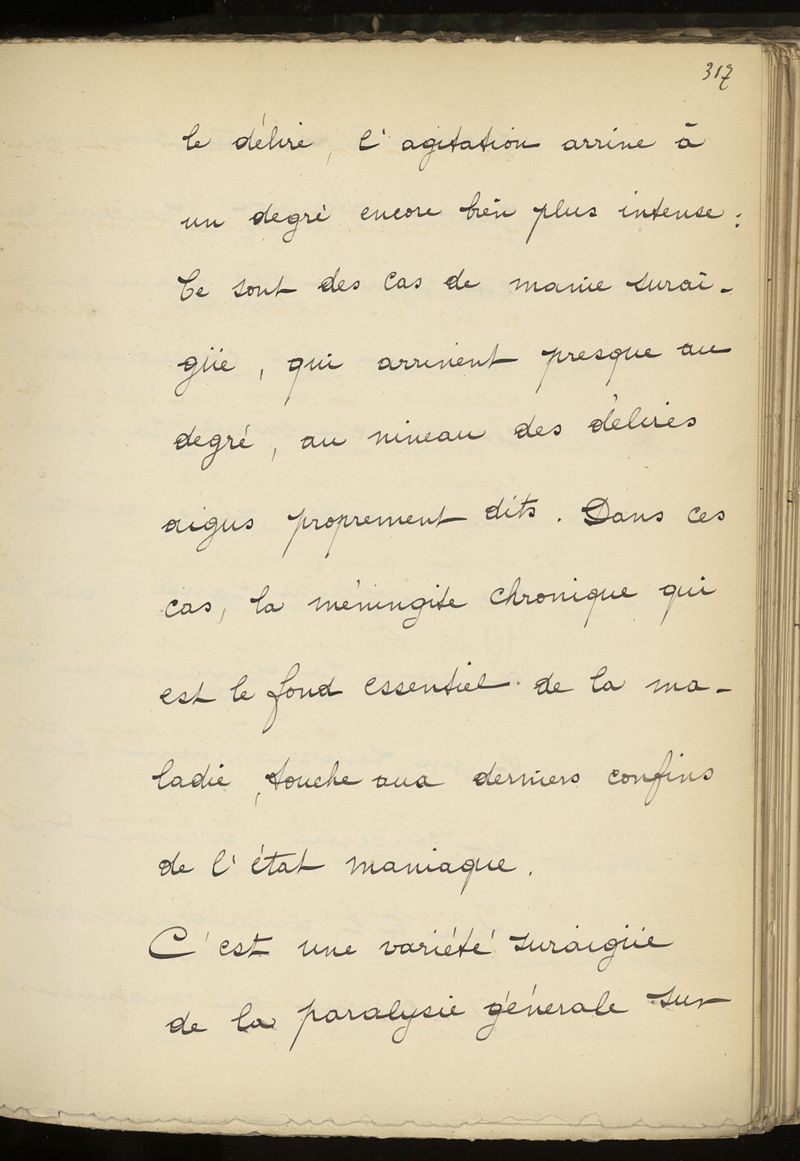 317
le délire, l'agitation arrive à
un degré encore bien plus intense :
Ce sont des cas de manie surai-
güe, qui arrivent presque au
degré, au niveau des délires
aigus proprement dits. Dans ces
cas, la méningite chronique qui
est le fond essentiel de la ma-
ladie, touche aux derniers confins
de l'état maniaque.
C'est une variété suraigüe
de la paralysie générale sur